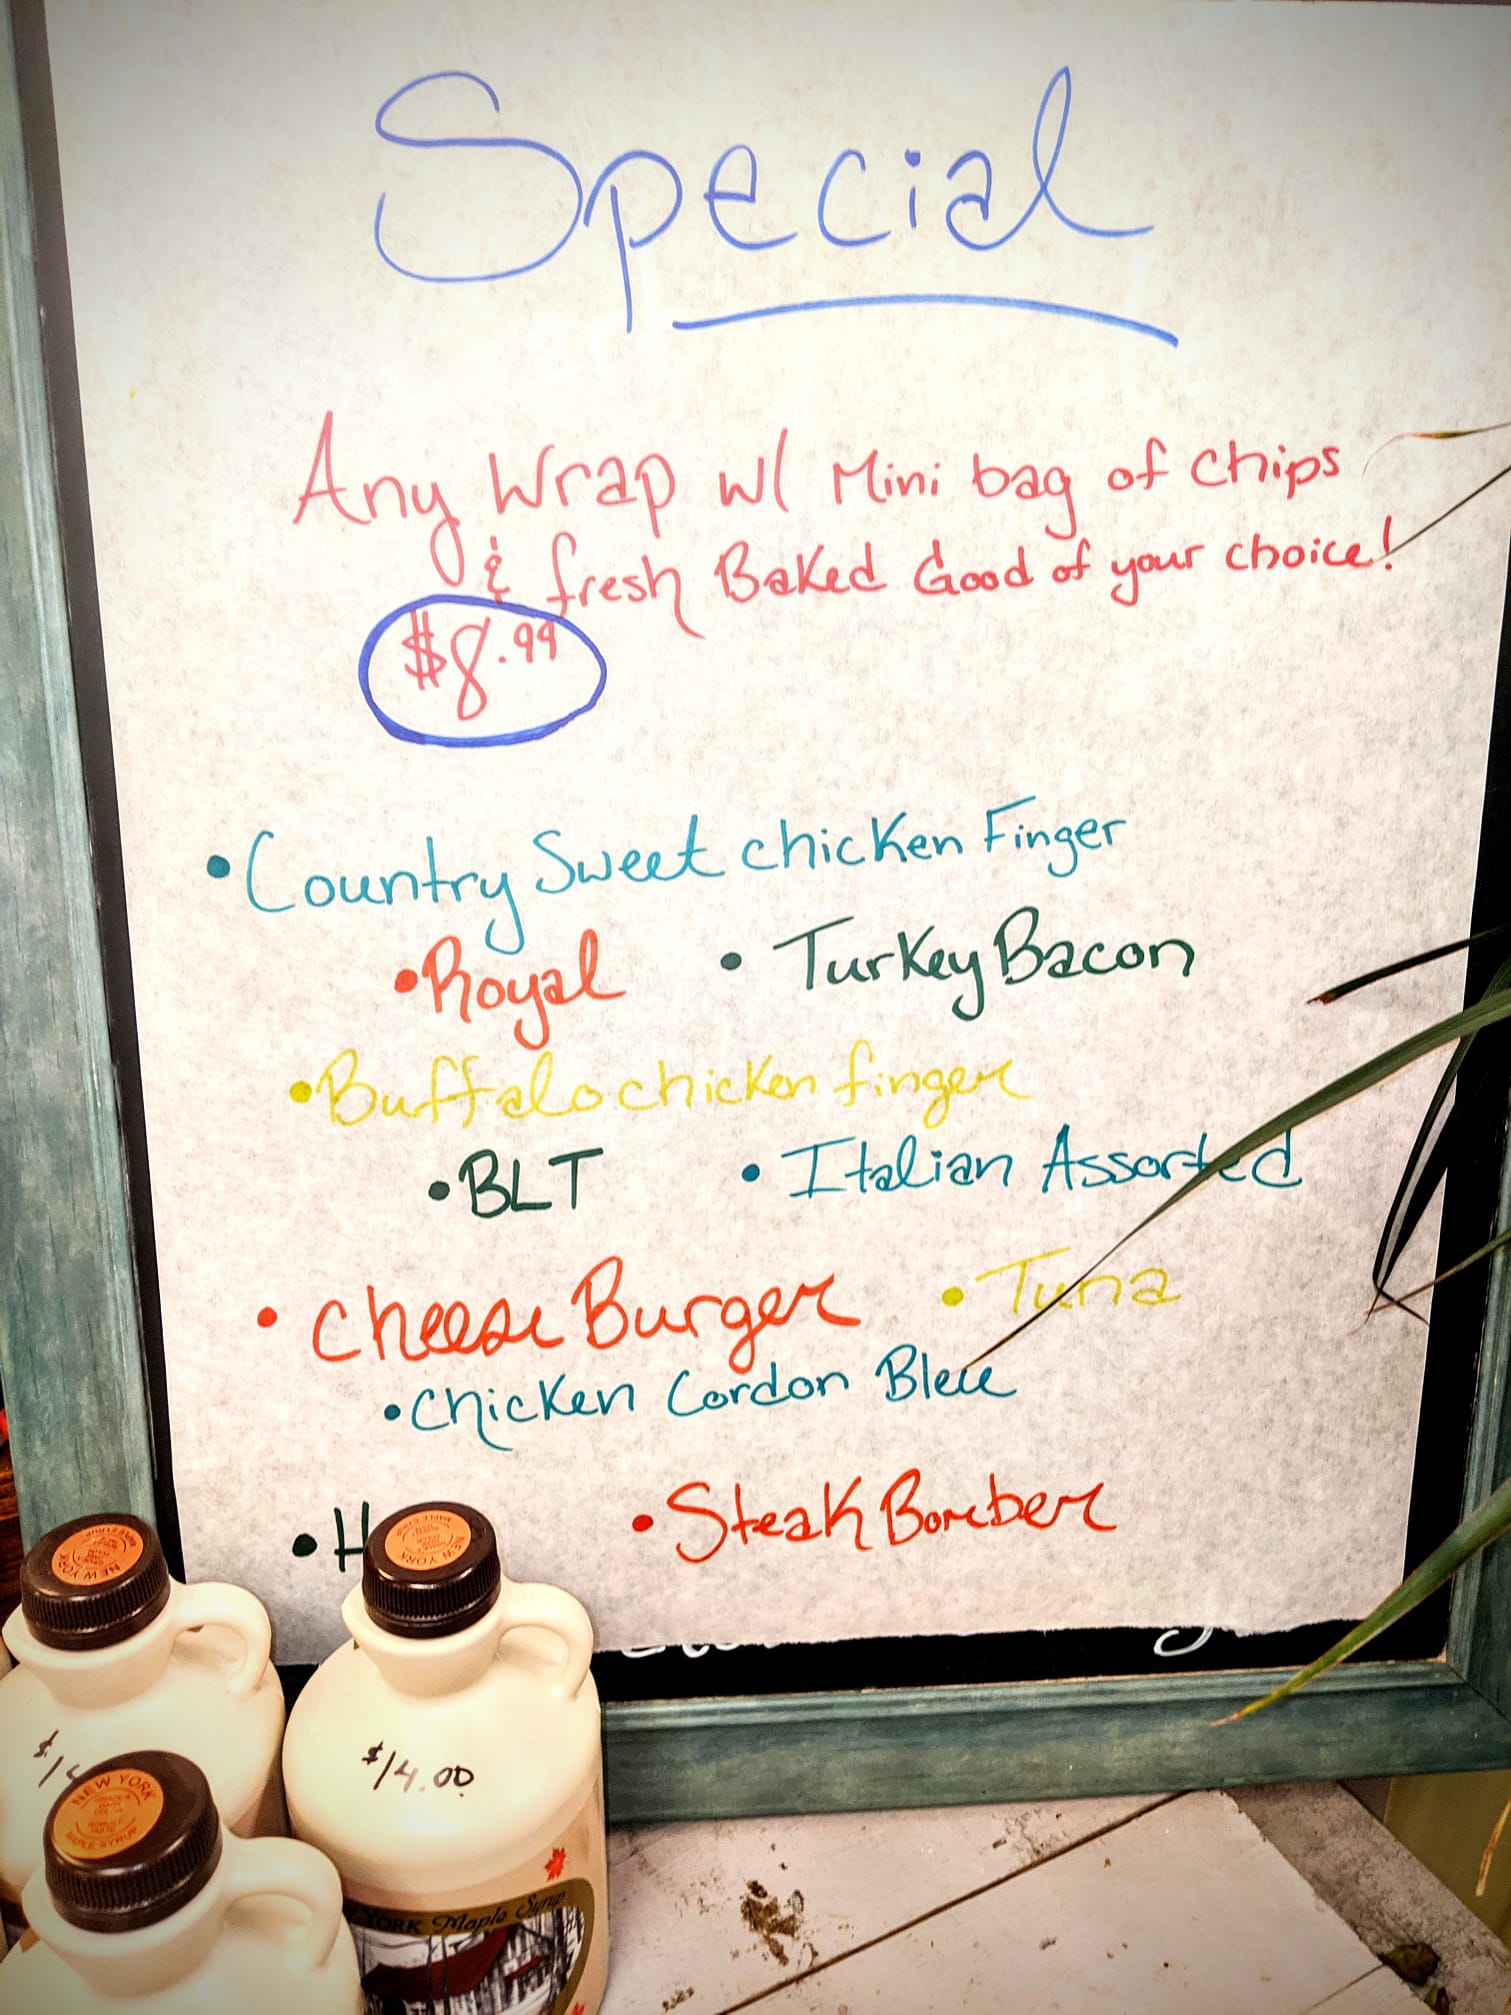 Special
Any Wrap w/ Mini bag of chips
& fresh Baked Good of your choice!
$8.99
• Country Sweet chicken Finger
• Royal • Turkey Bacon
• Buffalo chicken finger
• BLT • Italian Assorted
• Cheese Burger • Tuna
• Chicken Cordon Bleu
• Steak Bomber
NEW YORK
MAPLE SYRUP
NEW YORK
MAPLE SYRUP
$14.00
NEW YORK
MAPLE SYRUP
YORK Maple Syrup